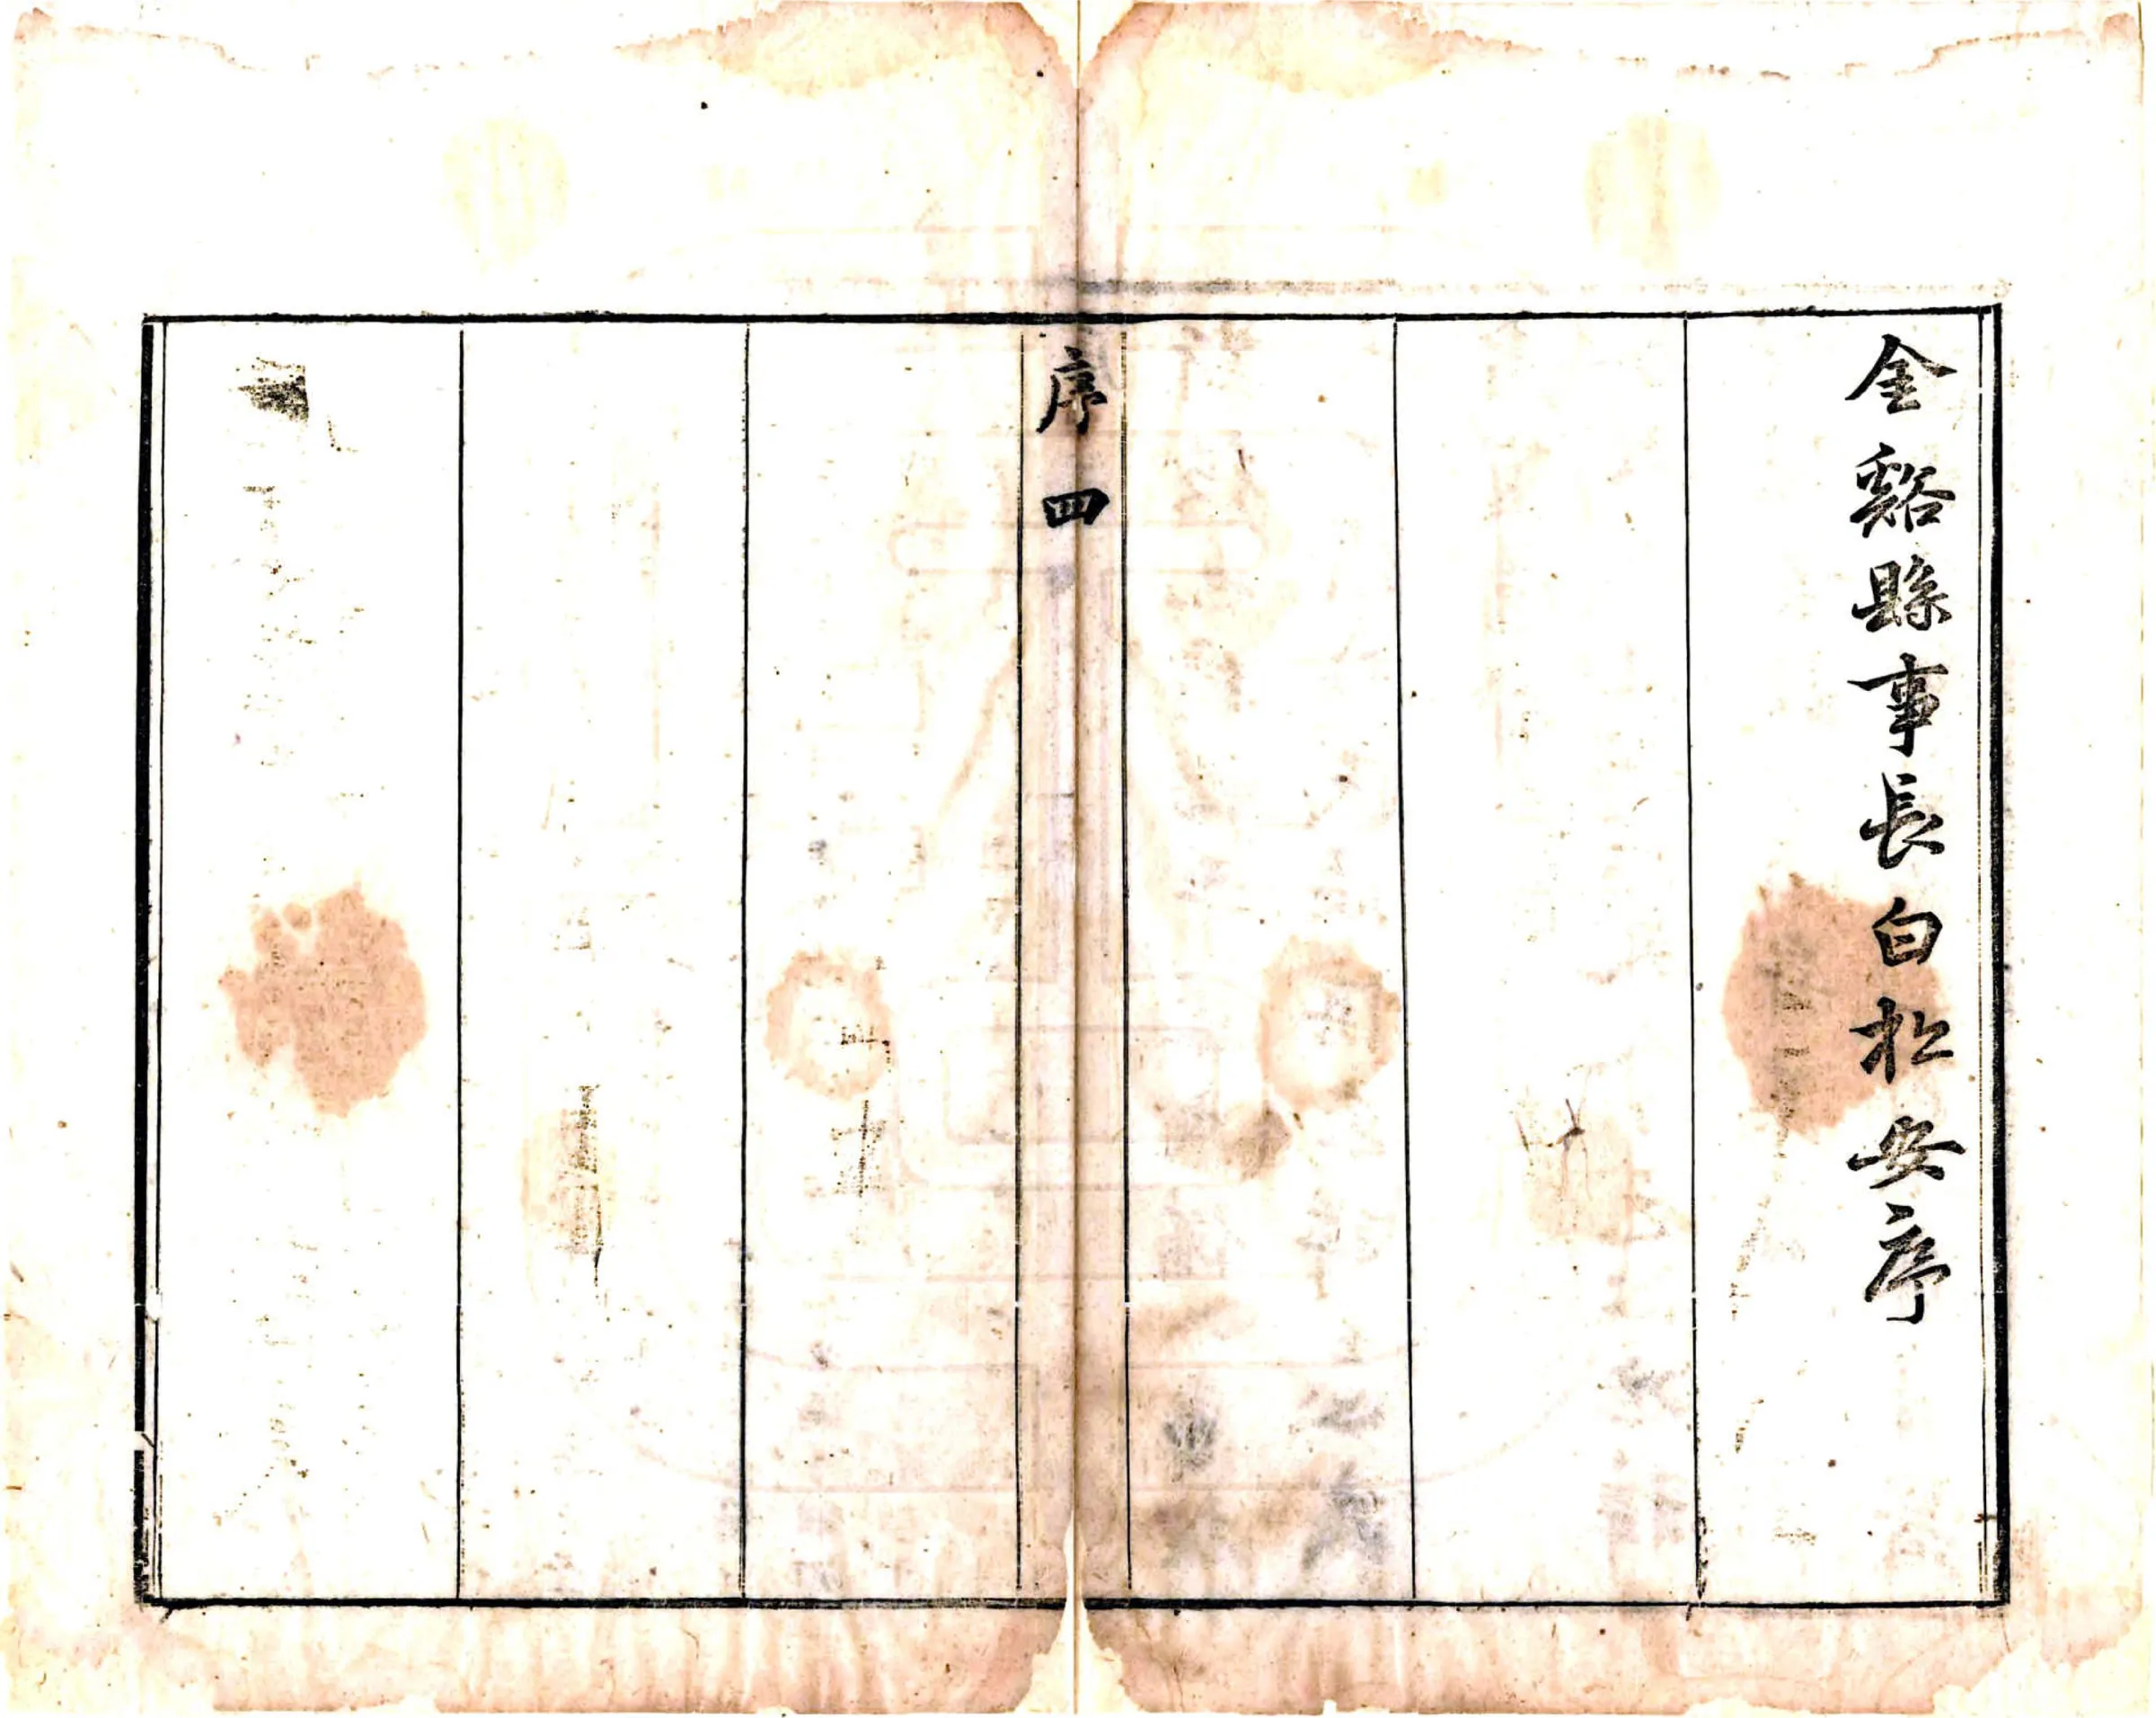 金谿縣事長白松安序
序 四